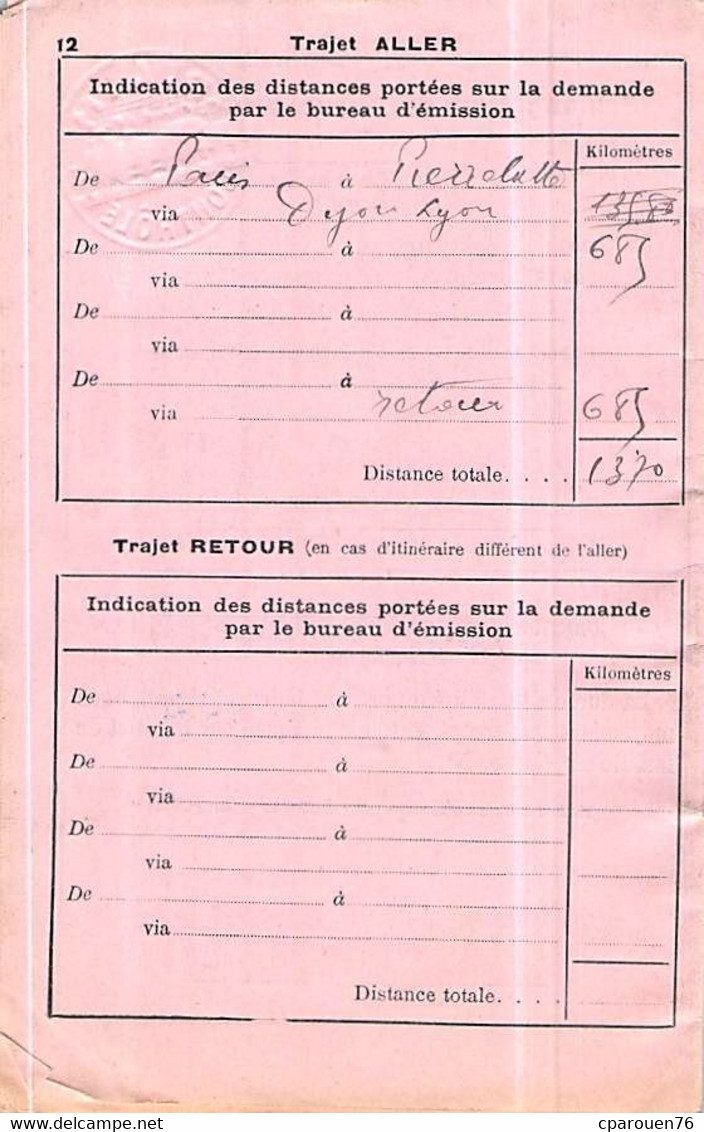 12 Trajet ALLER
Indication des distances portées sur la demande
par le bureau d'émission
Kilomètres
De Paris à Pierrelatte
via Dijon Lyon
De à 685
via
De à
via
De à
via retour 685
Distance totale. . . . 1370
Trajet RETOUR (en cas d'itinéraire différent de l'aller)
Indication des distances portées sur la demande
par le bureau d'émission
Kilomètres
De à
via
De à
via
De à
via
De à
via
Distance totale. . . .
cparouen76